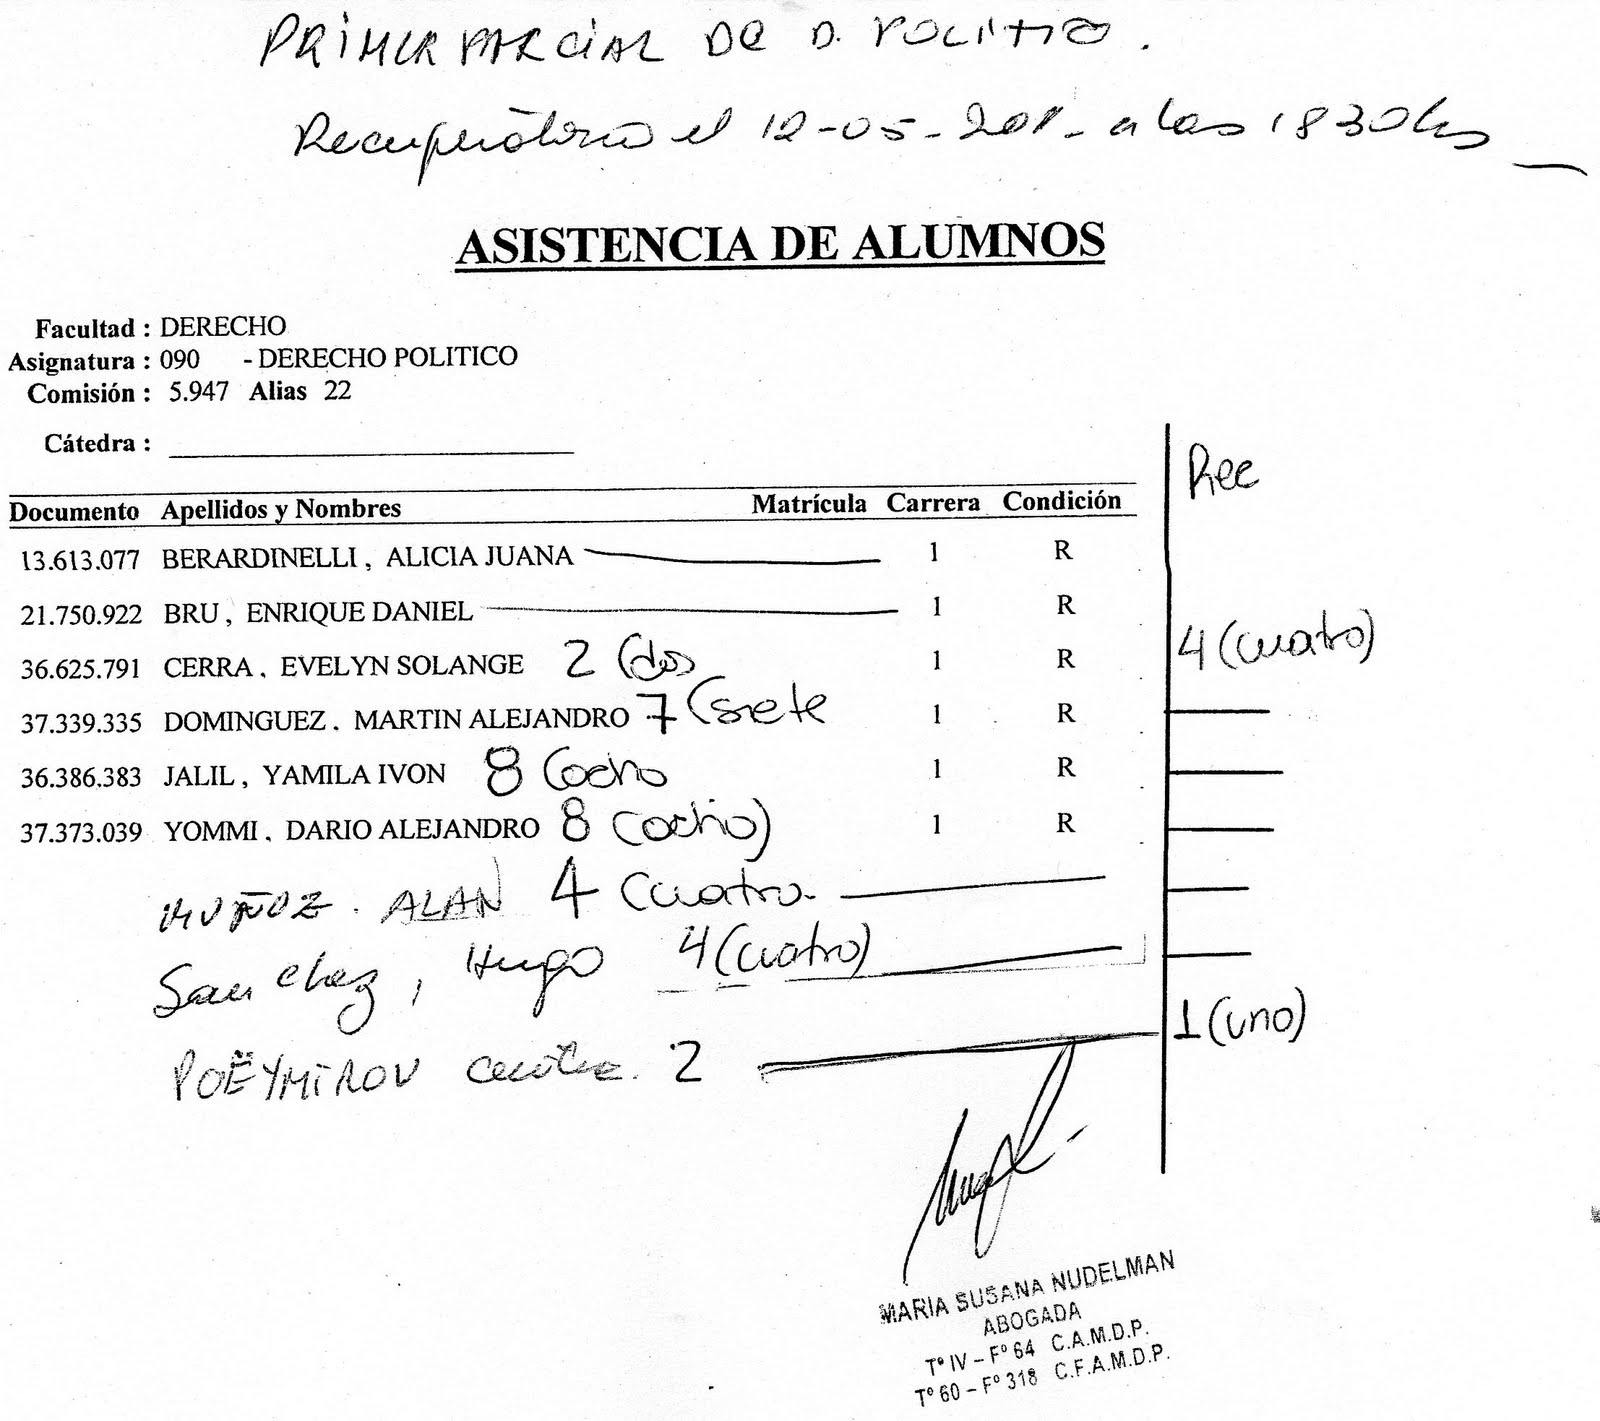 PRIMER PARCIAL DE D. POLITICO.
Recuperatorio el 12-05-2011- a las 1830hs
ASISTENCIA DE ALUMNOS
Facultad : DERECHO
Asignatura : 090 - DERECHO POLITICO
Comisión : 5.947 Alias 22
Cátedra :
Rec
Documento Apellidos y Nombres Matrícula Carrera Condición
13.613.077 BERARDINELLI, ALICIA JUANA 1 R
21.750.922 BRU, ENRIQUE DANIEL 1 R
36.625.791 CERRA, EVELYN SOLANGE 2 (dos 1 R 4 (cuatro)
37.339.335 DOMINGUEZ, MARTIN ALEJANDRO 7 (siete 1 R
36.386.383 JALIL, YAMILA IVON 8 (ocho 1 R
37.373.039 YOMMI, DARIO ALEJANDRO 8 (ocho) 1 R
MUÑOZ. ALAN 4 (cuatro.
Sanchez, Hugo 4 (cuatro)
POEYMIROU 2 1 (uno)
MARIA SUSANA NUDELMAN
ABOGADA
Tº IV – Fº 64 C.A.M.D.P.
Tº 60 – Fº 318 C.F.A.M.D.P.